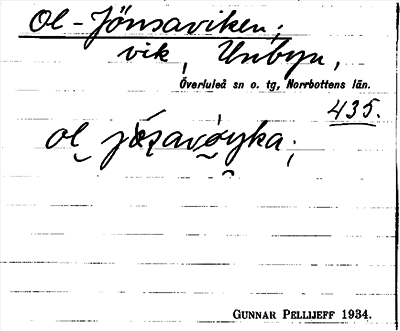 Ol-Jönsaviken;
vik, Unbyn,
Överluleå sn o. tg, Norrbottens län.
435.
GUNNAR PELLIJEFF 1934.